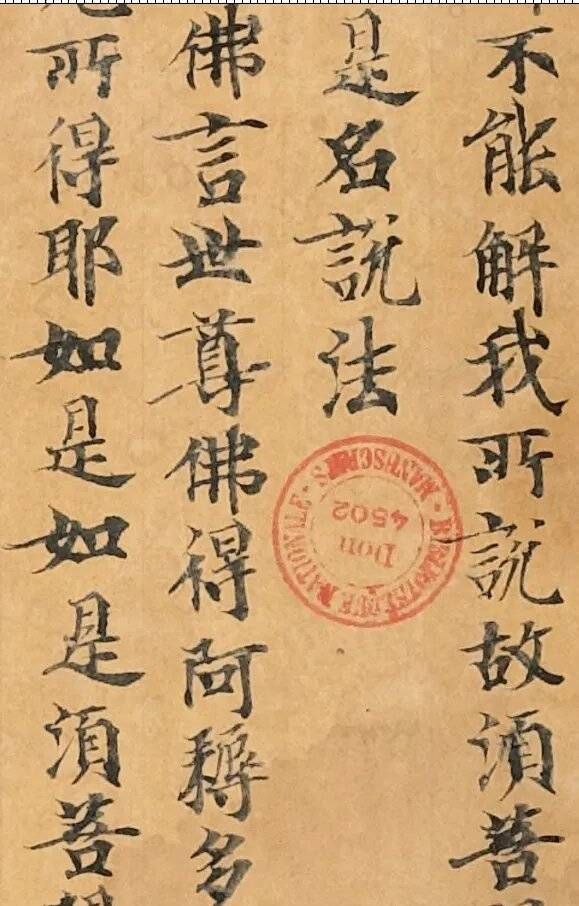 不能解我所説故湏菩
是名説法
佛言世尊佛得阿耨多
所得耶如是如是湏菩
BIBLIOTHEQUE NATIONALE
MANUSCRITS
Don
4502